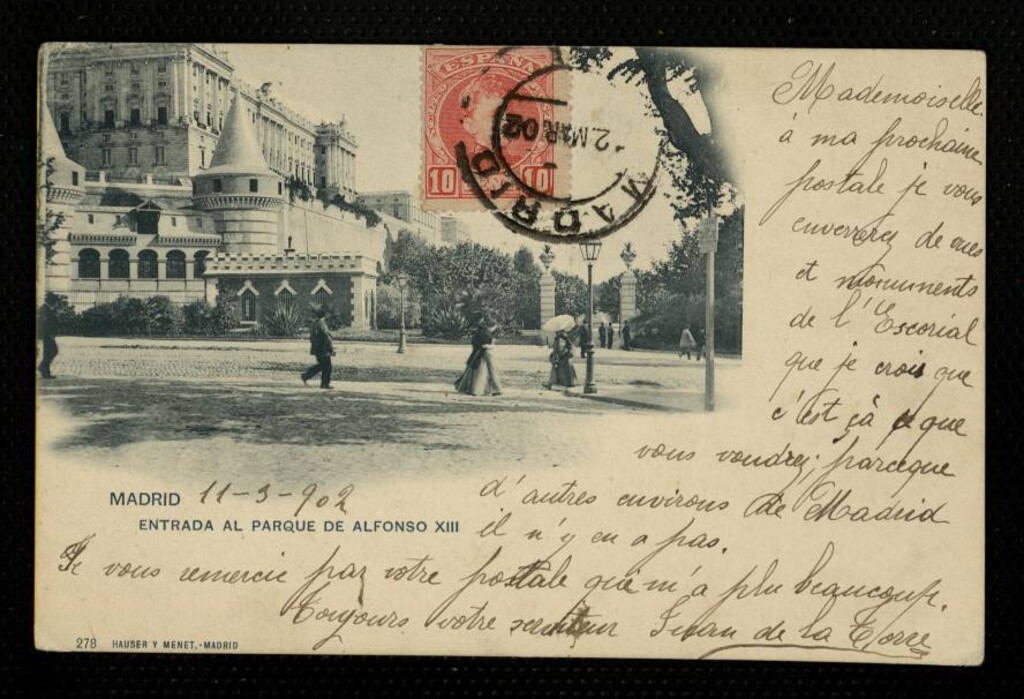 ESPAÑA
10 10
MADRID
12 MAR 02
Mademoiselle:
á ma prochaine
postale je vous
enverrez de vues
et monuments
de l'Escorial
que je crois que
c'est çà que
vous voudrez; parceque
d'autres environs de Madrid
il n'y en a pas.
MADRID 11-3-902
ENTRADA AL PARQUE DE ALFONSO XIII
Je vous remercie par votre postale qui m'a plu beaucoup.
Toujours votre serviteur Juan de la Torre
278 HAUSER Y MENET.-MADRID